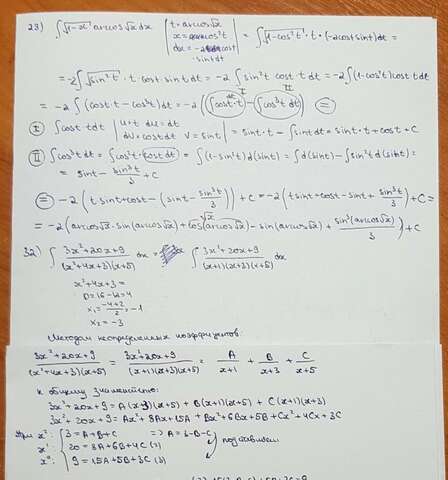 23) ∫√(1-x) arcos√x dx | t = arcos√x
x = cos²t
dx = -2cost·sint dt | = ∫√(1-cos²t) · t · (-2cost sint) dt =
= -2∫√(sin²t) · t cost sint dt = -2∫sin²t cost t dt = -2∫(1-cos²t) cost t dt
= -2∫(cost t - cos³t) dt = -2(∫cost·t dt - ∫cos³t dt) =
I ∫cost t dt | u=t du=dt
dv=cost dt v=sint | = sint·t - ∫sint dt = sint·t + cost + C
II ∫cos³t dt = ∫cos²t·cost dt = ∫(1-sin²t) d(sint) = ∫d(sint) - ∫sin²t d(sint) =
= sint - sin³t/3 + C
= -2(t·sint + cost - (sint - sin³t/3)) + C = -2(t sint + cost - sint + sin³t/3) + C =
= -2(arcos√x · sin(arcos√x) + cos(arcos√x) - sin(arcos√x) + sin³(arcos√x)/3) + C
√x
32) ∫ (3x²+20x+9)/((x²+4x+3)(x+5)) dx = ∫ (3x²+20x+9)/((x+1)(x+3)(x+5)) dx
x²+4x+3=
D=16-12=4
x₁=(-4+2)/2=-1
x₂=-3
Методом неопределенных коэффициентов:
(3x²+20x+9)/((x²+4x+3)(x+5)) = (3x²+20x+9)/((x+1)(x+3)(x+5)) = A/(x+1) + B/(x+3) + C/(x+5)
к общему знаменателю:
3x²+20x+9=A(x+3)(x+5)+B(x+1)(x+5)+C(x+1)(x+3)
3x²+20x+9=Ax²+8Ax+15A+Bx²+6Bx+5B+Cx²+4Cx+3C
При x²: 3=A+B+C => A=3-B-C
x¹: 20=8A+6B+4C (2) подставим
x⁰: 9=15A+5B+3C (3)